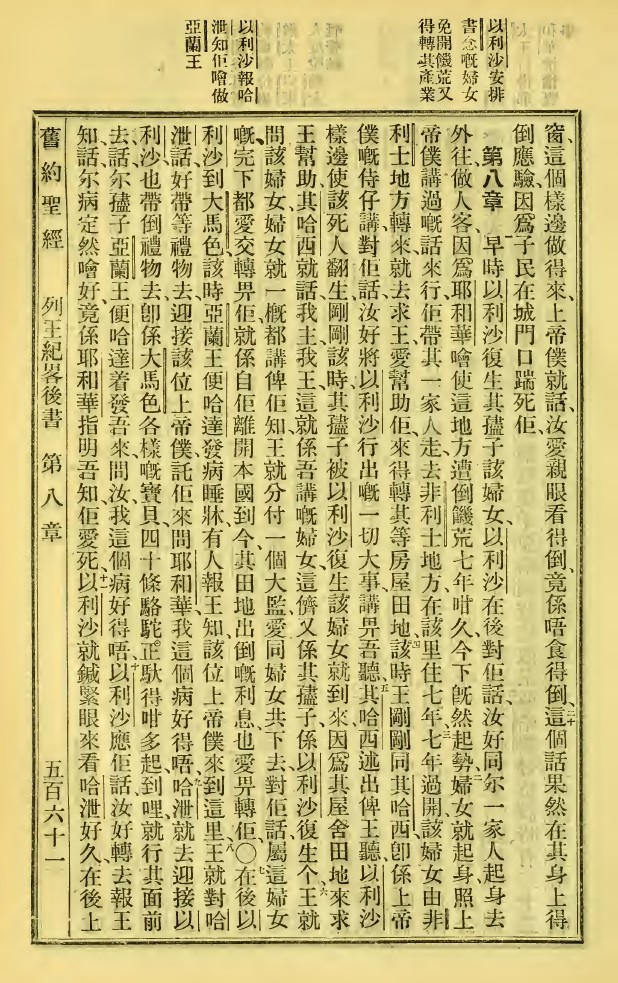 以利沙安排
書念嘅婦女
免開饑荒又
得轉其產業
以利沙報哈
泄知佢噲做
亞蘭王
窗、這個樣邊做得來、上帝僕就話、汝愛親眼看得倒、竟係唔食得倒、二十這個話果然在其身上得
倒應驗、因爲子民在城門口踹死佢、
第八章 早時以利沙復生其孻子該婦女、以利沙在後對佢話、汝好同尔一家人起身去
外往做人客、因爲耶和華噲使這地方遭倒饑荒七年咁久、今下旣然起勢、二婦女就起身照上
帝僕講過嘅話來行、佢帶其一家人走去非利士地方、在該里住七年、三七年過開、該婦女由非
利士地方轉來、就去求王愛幫助佢來得轉其等房屋田地、四該時王剛剛同其哈西、卽係上帝
僕嘅侍仔講、對佢話、汝好將以利沙行出嘅一切大事講畀吾聽、五其哈西述出俾王聽、以利沙
樣邊使該死人翻生、剛剛該時、其孻子被以利沙復生該婦女就到來、因爲其屋舍田地來求
王幫助、其哈西就話、我主我王、這就係吾講嘅婦女、這儕又係其孻子、係以利沙復生个、六王就
問該婦女、婦女就一概都講俾佢知、王就分付一個大監愛同婦女共下去、對佢話、屬這婦女
嘅、完下都愛交轉畀佢、就係自佢離開本國到今、其田地出倒嘅利息、也愛畀轉佢、〇七在後以
利沙到大馬色、該時亞蘭王便哈達發病睡牀、有人報王知、該位上帝僕來到這里、八王就對哈
泄話、好帶等禮物去迎接該位上帝僕、託佢來問耶和華、我這個病好得唔、九哈泄就去迎接以
利沙、也帶倒禮物去、卽係大馬色各樣嘅寶貝、四十條駱駝正馱得咁多、起到哩、就行其面前
去、話、尔孻子亞蘭王便哈達着發吾來問汝、我這個病好得唔、十以利沙應佢話、汝好轉去報王
知、話尔病定然噲好、竟係耶和華指明吾知佢愛死、十一以利沙就鍼緊眼來看哈泄好久、在後上
舊約聖經 列王紀畧後書 第八章 五百六十一